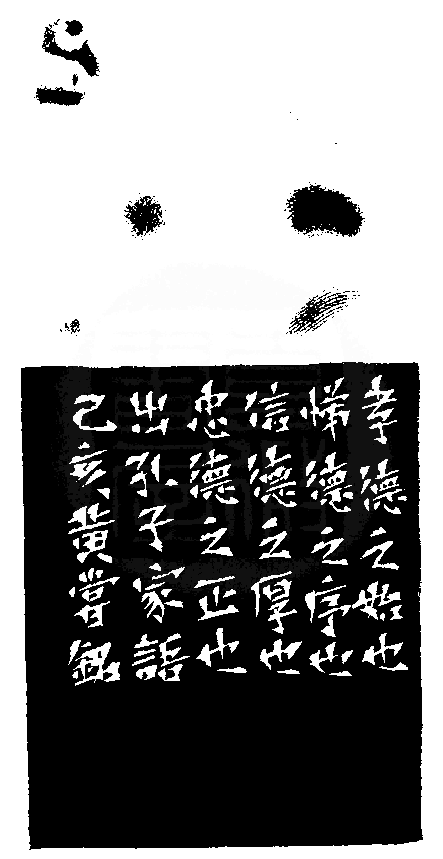 孝德之始也
悌德之序也
信德之厚也
忠德之正也
出孔子家語
己亥黃嘗銘